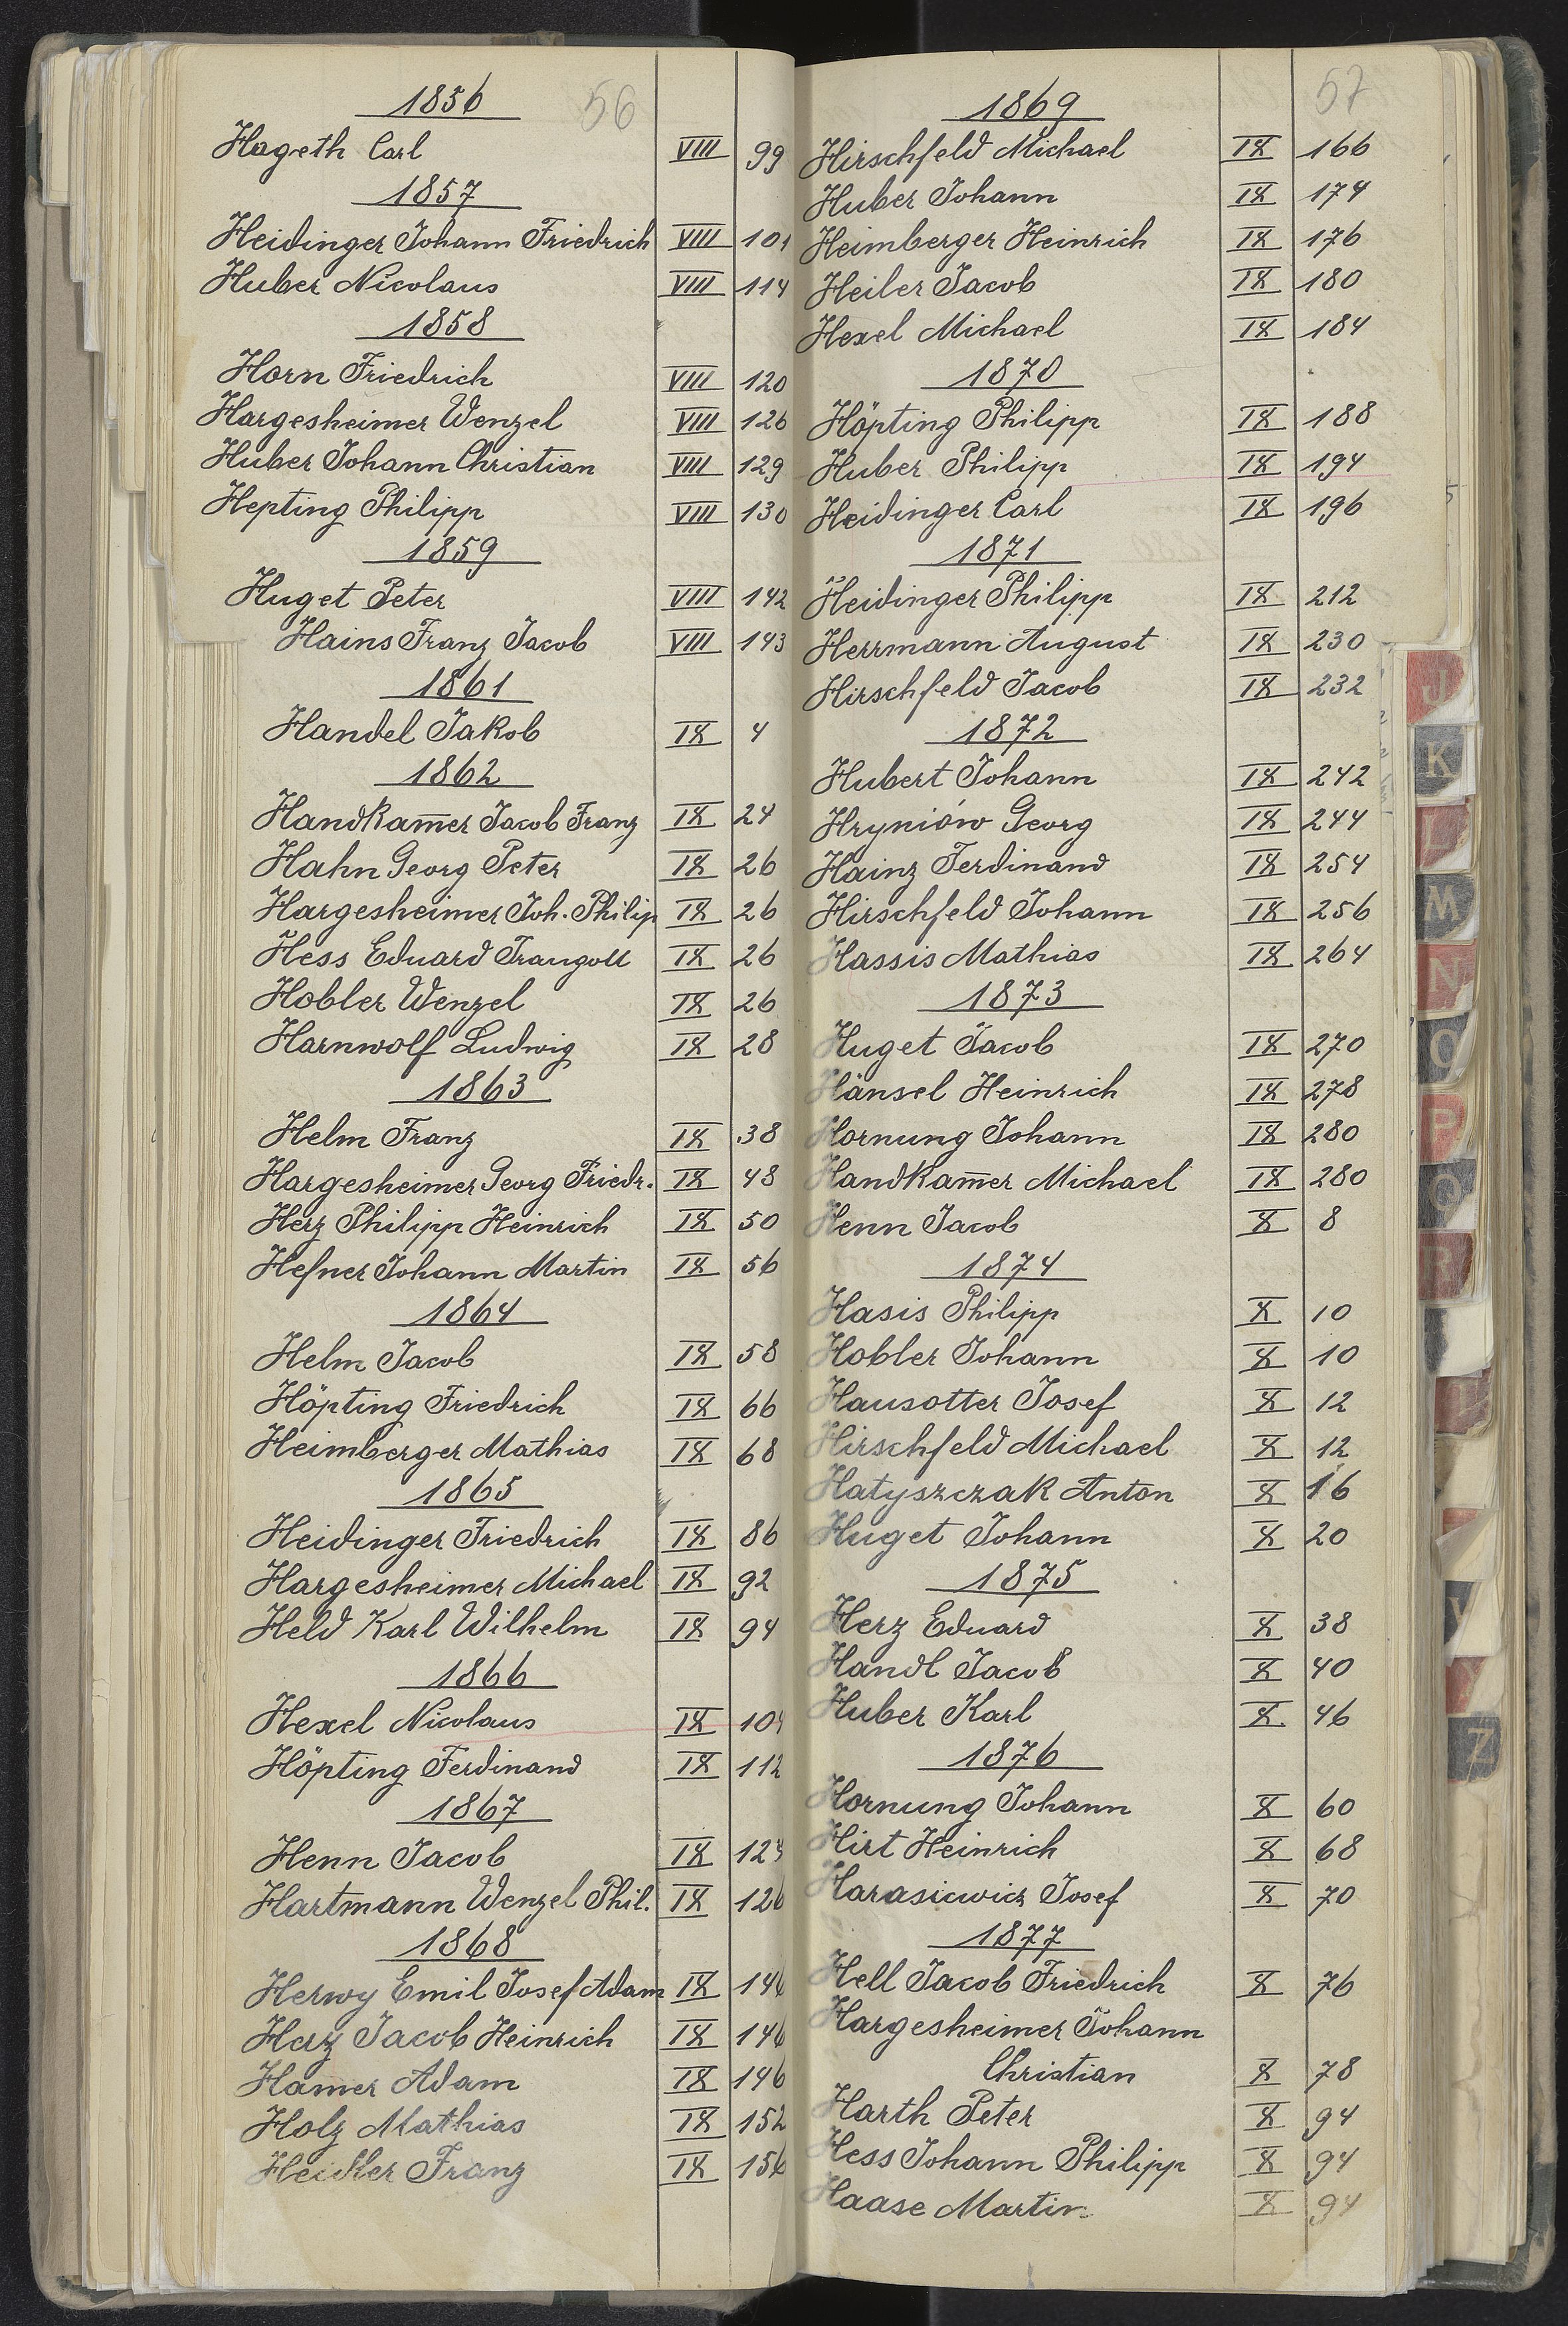 56
1856
Hageth Carl VIII 99
1857
Heidinger Johann Friedrich VIII 101
Huber Nicolaus VIII 114
1858
Horn Friedrich VIII 120
Hargesheimer Wenzel VIII 126
Huber Johann Christian VIII 129
Hepting Philipp VIII 130
1859
Huget Peter VIII 142
Hains Franz Jacob VIII 143
1861
Handel Jakob IX 4
1862
Handkam̅er Jacob Franz IX 24
Hahn Georg Peter IX 26
Hargesheimer Joh. Philip IX 26
Hess Eduard Traugott IX 26
Hobler Wenzel IX 26
Harnwolf Ludwig IX 28
1863
Helm Franz IX 38
Hargesheimer Georg Friedr. IX 48
Herz Philipp Heinrich IX 50
Hefner Johann Martin IX 56
1864
Helm Jacob IX 58
Höpting Friedrich IX 66
Heimberger Mathias IX 68
1865
Heidinger Friedrich IX 86
Hargesheimer Michael IX 92
Held Karl Wilhelm IX 94
1866
Hexel Nicolaus IX 104
Höpting Ferdinand IX 112
1867
Henn Jacob IX 124
Hartmann Wenzel Phil. IX 126
1868
Herwy Emil Josef Adam IX 146
Herz Jacob Heinrich IX 146
Hamer Adam IX 146
Holz Mathias IX 152
Heidler Franz IX 156
57
1869
Hirschfeld Michael IX 166
Huber Johann IX 174
Heimberger Heinrich IX 176
Heiler Jacob IX 180
Hexel Michael IX 184
1870
Höpting Philipp IX 188
Huber Philipp IX 194
Heidinger Carl IX 196
1871
Heidinger Philipp IX 212
Herrmann August IX 230
Hirschfeld Jacob IX 232
1872
Hubert Johann IX 242
Hryniów Georg IX 244
Hainz Ferdinand IX 254
Hirschfeld Johann IX 256
Hassis Mathias IX 264
1873
Huget Jacob IX 270
Hänsel Heinrich IX 278
Hornung Johann IX 280
Handkam̅er Michael IX 280
Henn Jacob X 8
1874
Hasis Philipp X 10
Hobler Johann X 10
Hausotter Josef X 12
Hirschfeld Michael X 12
Hatyszczak Anton X 16
Huget Johann X 20
1875
Herz Eduard X 38
Handl Jacob X 40
Huber Karl X 46
1876
Hornung Johann X 60
Hirt Heinrich X 68
Harasiewicz Josef X 70
1877
Hell Jacob Friedrich X 76
Hargesheimer Johann
Christian X 78
Harth Peter X 94
Hess Johann Philipp X 94
Haase Martin X 94
J
K
L
M
N
O
P
Q
R
Z